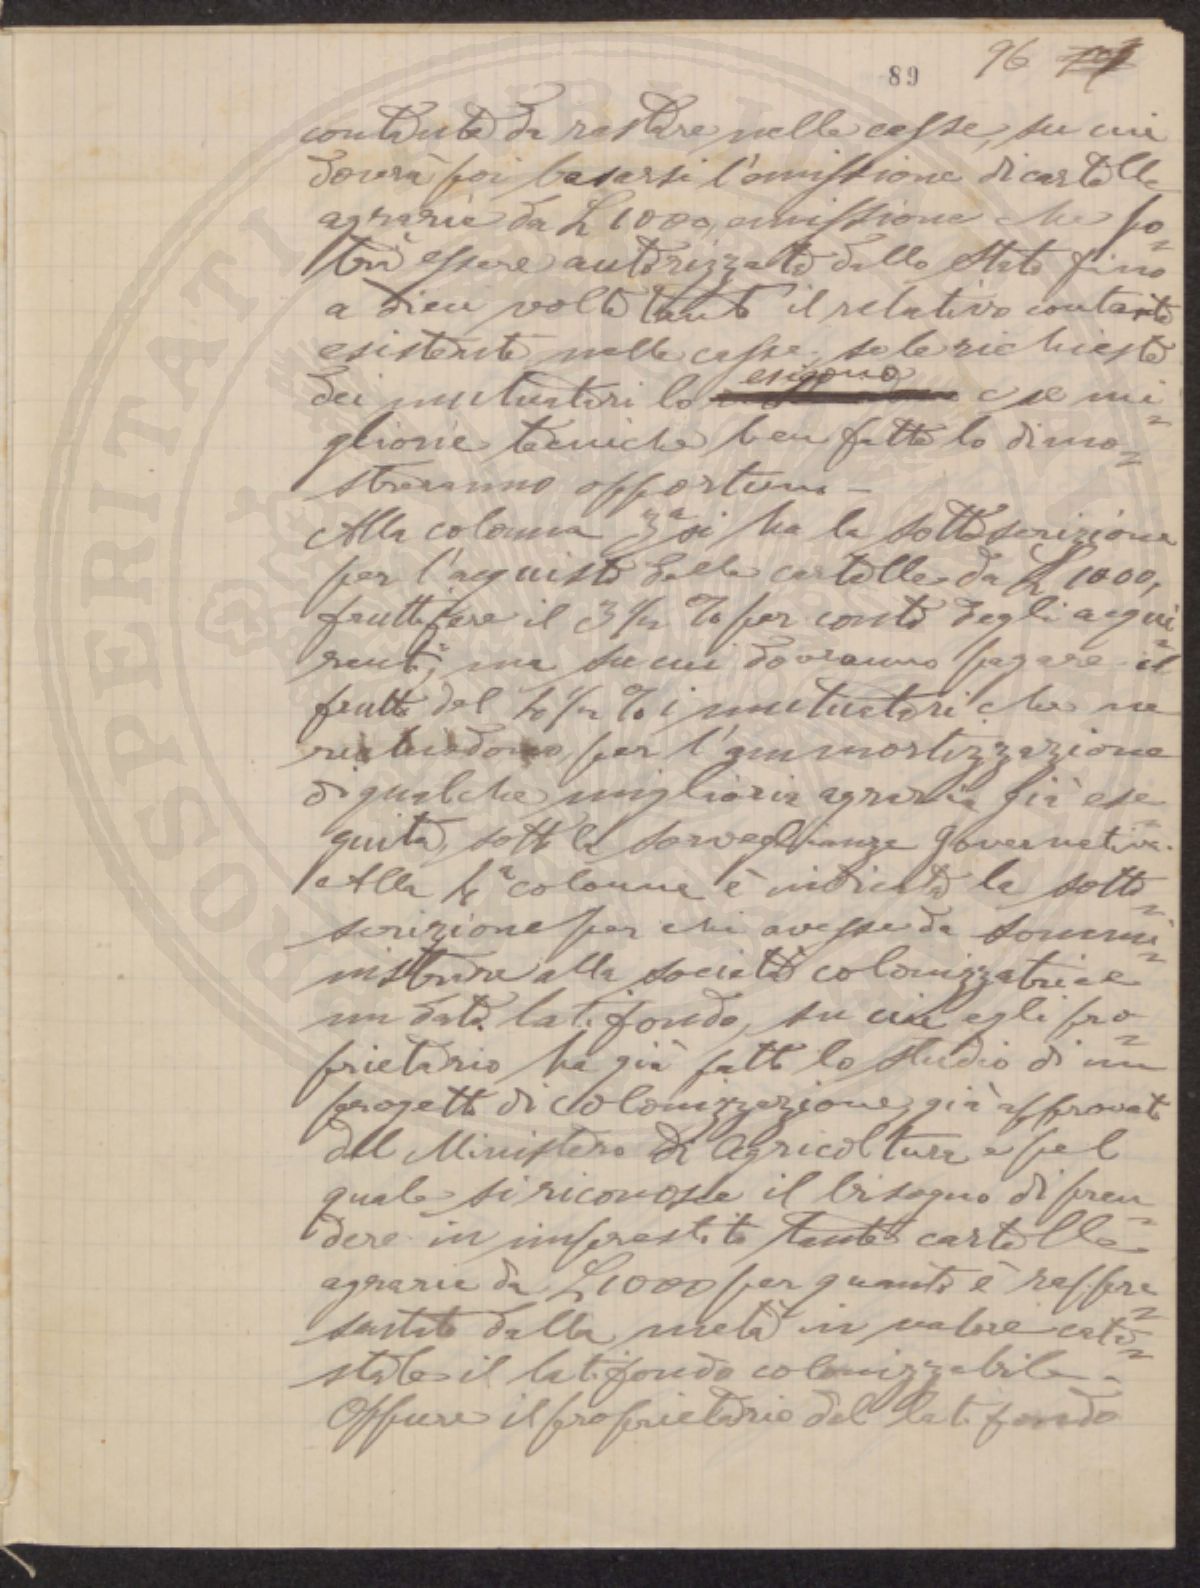 89 96
contante da restare nelle casse, su cui
dovrà poi basarsi l'emissione di cartelle
agrarie da L 1000, emissione che po=
trà essere autorizzata dallo Stato fino
a dieci volte tanto il relativo contante
esistente nelle casse, se le richieste
dei mutuatari lo esigono e se mi=
gliorie tecniche ben fatte lo dimo=
streranno opportuno —
Alla colonna 3ª si ha la sottoscrizione
per l'acquisto delle cartelle da L 1000,
fruttifere il 3 1/2 % per conto degli acqui=
renti, ma su cui dovranno pagare il
frutto del 4 1/2 % i mutuatari che ne
richiedono per l'ammortizzazione
di qualche miglioria agraria già ese=
guita, sotto la sorveglianza governativa.
Alla 4ª colonna è indicata la sotto=
scrizione per chi avesse da sommi=
nistrare alla società colonizzatrice
un dato latifondo, su cui egli pro=
prietario ha già fatto lo studio di un
progetto di colonizzazione, già approvato
dal Ministero di Agricoltura e pel
quale si riconosce il bisogno di pren=
dere in imprestito tante cartelle
agrarie da L 1000 per quanto è rappre=
sentato dalla metà in valore cata=
stale il latifondo colonizzabile.
Oppure il proprietario del latifondo
PROSPERITATI PUBLICAE